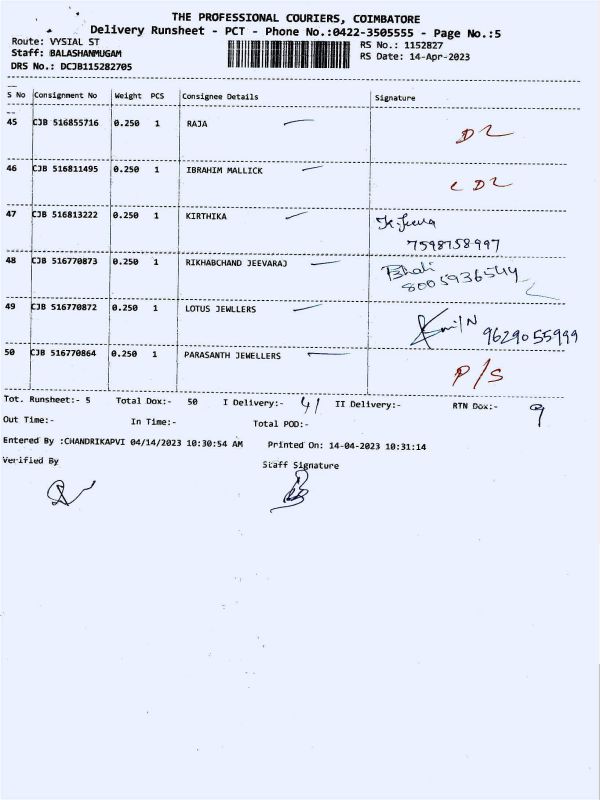 THE PROFESSIONAL COURIERS, COIMBATORE
Delivery Runsheet - PCT - Phone No.:0422-3505555 - Page No.:5
Route: VYSIAL ST
RS No.: 1152827
Staff: BALASHANMUGAM
RS Date: 14-Apr-2023
DRS No.: DCJB115282705
S No Consignment No Weight PCS Consignee Details Signature
45 CJB 516855716 0.250 1 RAJA
46 CJB 516811495 0.250 1 IBRAHIM MALLICK
47 CJB 516813222 0.250 1 KIRTHIKA
7598758997
48 CJB 516770873 0.250 1 RIKHABCHAND JEEVARAJ
8005936544
49 CJB 516770872 0.250 1 LOTUS JEWLLERS
9629055999
50 CJB 516770864 0.250 1 PARASANTH JEWELLERS P/S
Tot. Runsheet:- 5 Total Dox:- 50 I Delivery:- 41 II Delivery:- RTN Dox:- 9
Out Time:- In Time:- Total POD:-
Entered By :CHANDRIKAPVI 04/14/2023 10:30:54 AM Printed On: 14-04-2023 10:31:14
Verified By Staff Signature